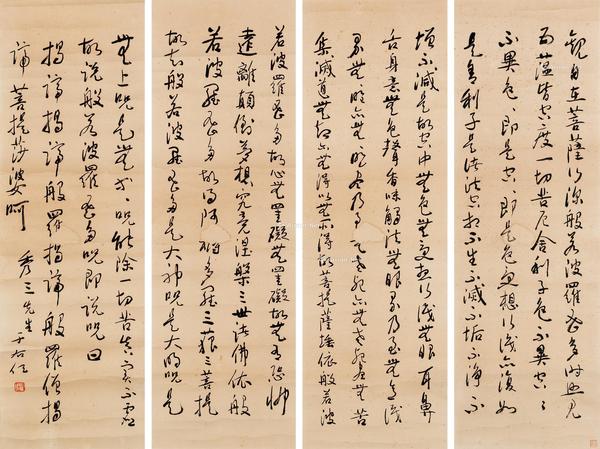 觀自在菩薩行深般若波羅蜜多時照見
五蘊皆空度一切苦厄舍利子色不異空〻
不異色〻即是空〻即是色受想行識亦復如
是舍利子是諸法空相不生不滅不垢不淨不
增不減是故空中無色無受想行識無眼耳鼻
舌身意無色聲香味觸法無眼界乃至無意識
界無〻明亦無〻明盡乃至無老死亦無老死盡無苦
集滅道無智亦無得以無所得故菩提薩埵依般若波
若波羅蜜多故心無罣礙無罣礙故無有恐怖
遠離顛倒夢想究竟涅槃三世諸佛依般
若波羅蜜多故得阿耨多羅三藐三菩提
故知般若波羅蜜多是大神咒是大明咒是
無上咒是無等〻咒能除一切苦真實不虛
故說般若波羅蜜多咒即說咒曰
揭諦揭諦般羅揭諦般羅僧揭
諦菩提莎婆呵
秀三先生 于右任